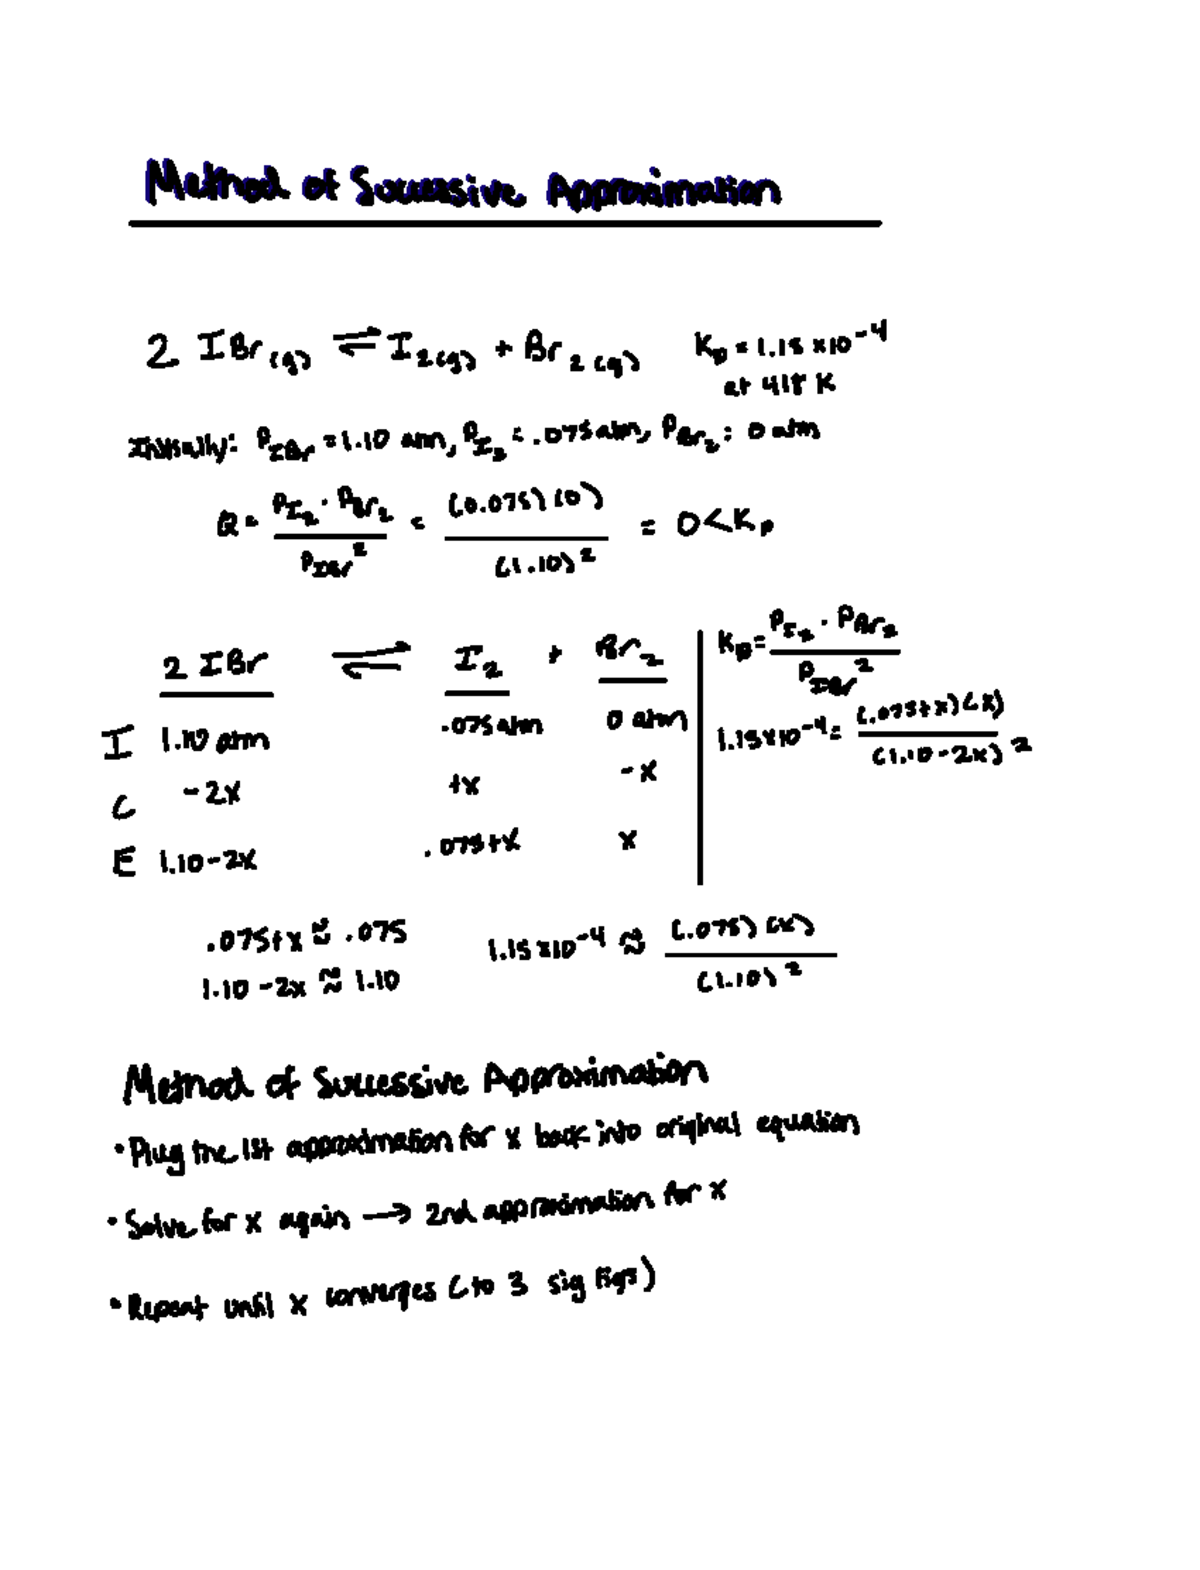 Method of Successive Approximation
2 IBr(g) ⇌ I2(g) + Br2(g) Kp = 1.15 x10^-4
at 418 K
Initially: P_IBr = 1.10 atm, P_I2 = .075 atm, P_Br2 = 0 atm
Q = P_I2 · P_Br2 / P_IBr^2 = (0.075)(0) / (1.10)^2 = 0 < Kp
2 IBr ⇌ I2 + Br2
I 1.10 atm .075 atm 0 atm
C -2x +x -x
E 1.10-2x .075+x x
Kp = P_I2 · P_Br2 / P_IBr^2
1.15x10^-4 = (.075+x)(x) / (1.10-2x)^2
.075+x ≈ .075
1.10-2x ≈ 1.10
1.15 x10^-4 ≈ (.075)(x) / (1.10)^2
Method of Successive Approximation
• Plug the 1st approximation for x back into original equation
• Solve for x again → 2nd approximation for x
• Repeat until x converges (to 3 sig figs)